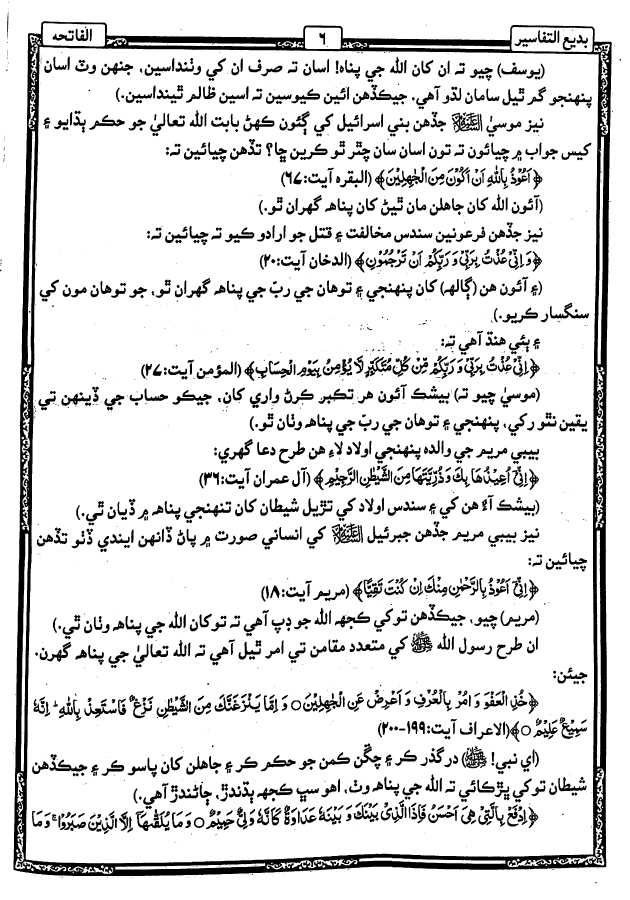 بديع التفاسير
٦
الفاتحه
(يوسف) چيو ته ان کان الله جي پناه! اسان ته صرف ان کي وٺنداسين، جنهن وٽ اسان
پنهنجو گم ٿيل سامان لڌو آهي، جيڪڏهن ائين ڪيوسين ته اسين ظالم ٿينداسين.)
نيز موسيٰ عليه السلام جڏهن بني اسرائيل کي ڳئون ڪهڻ بابت الله تعاليٰ جو حڪم ٻڌايو ۽
کيس جواب ۾ چيائون ته تون اسان سان چٿر ٿو ڪرين ڇا؟ تڏهن چيائين ته:
﴿اَعُوْذُ بِاللّٰهِ اَنْ اَكُوْنَ مِنَ الْجٰهِلِيْنَ﴾ (البقره آيت:٦٧)
(آئون الله کان جاهلن مان ٿيڻ کان پناهه گهران ٿو.)
نيز جڏهن فرعونين سندس مخالفت ۽ قتل جو ارادو ڪيو ته چيائين ته:
﴿وَ اِنِّيْ عُذْتُ بِرَبِّيْ وَ رَبِّكُمْ اَنْ تَرْجُمُوْنِ﴾ (الدخان آيت:٢٠)
(۽ آئون هن (ڳالهه) کان پنهنجي ۽ توهان جي ربّ جي پناهه گهران ٿو، جو توهان مون کي
سنگسار ڪريو.)
۽ ٻئي هنڌ آهي ته:
﴿اِنِّيْ عُذْتُ بِرَبِّيْ وَ رَبِّكُمْ مِّنْ كُلِّ مُتَكَبِّرٍ لَّا يُؤْمِنُ بِيَوْمِ الْحِسَابِ﴾ (المؤمن آيت:٢٧)
(موسيٰ چيو ته) بيشڪ آئون هر تڪبر ڪرڻ واري کان، جيڪو حساب جي ڏينهن تي
يقين نٿو رکي، پنهنجي ۽ توهان جي ربّ جي پناهه وٺان ٿو.)
بيبي مريم جي والده پنهنجي اولاد لاءِ هن طرح دعا گهري:
﴿اِنِّيْ اُعِيْذُهَا بِكَ وَ ذُرِّيَّتَهَا مِنَ الشَّيْطٰنِ الرَّجِيْمِ﴾ (آل عمران آيت:٣٦)
(بيشڪ آءٌ هن کي ۽ سندس اولاد کي تڙيل شيطان کان تنهنجي پناهه ۾ ڏيان ٿي.)
نيز بيبي مريم جڏهن جبرئيل عليه السلام کي انساني صورت ۾ پاڻ ڏانهن ايندي ڏٺو تڏهن
چيائين ته:
﴿اِنِّيْ اَعُوْذُ بِالرَّحْمٰنِ مِنْكَ اِنْ كُنْتَ تَقِيًّا﴾ (مريم آيت:١٨)
(مريم) چيو، جيڪڏهن توکي ڪجهه الله جو ڊپ آهي ته توکان الله جي پناهه وٺان ٿي.)
ان طرح رسول الله ﷺ کي متعدد مقامن تي امر ٿيل آهي ته الله تعاليٰ جي پناهه گهرن.
جيئن:
﴿خُذِ الْعَفْوَ وَ اْمُرْ بِالْعُرْفِ وَ اَعْرِضْ عَنِ الْجٰهِلِيْنَ ○ وَ اِمَّا يَنْزَغَنَّكَ مِنَ الشَّيْطٰنِ نَزْغٌ فَاسْتَعِذْ بِاللّٰهِ ؕ اِنَّهٗ
سَمِيْعٌ عَلِيْمٌ ○﴾ (الاعراف آيت:١٩٩-٢٠٠)
(اي نبي! ﷺ) درگذر ڪر ۽ چڱن ڪمن جو حڪم ڪر ۽ جاهلن کان پاسو ڪر ۽ جيڪڏهن
شيطان توکي ڀڙڪائي ته الله جي پناهه وٺ، اهو سڀ ڪجهه ٻڌندڙ، ڄاڻندڙ آهي.)
﴿اِدْفَعْ بِالَّتِيْ هِيَ اَحْسَنُ فَاِذَا الَّذِيْ بَيْنَكَ وَ بَيْنَهٗ عَدَاوَةٌ كَاَنَّهٗ وَلِيٌّ حَمِيْمٌ ○ وَ مَا يُلَقّٰىهَاۤ اِلَّا الَّذِيْنَ صَبَرُوْا ۚ وَ مَا